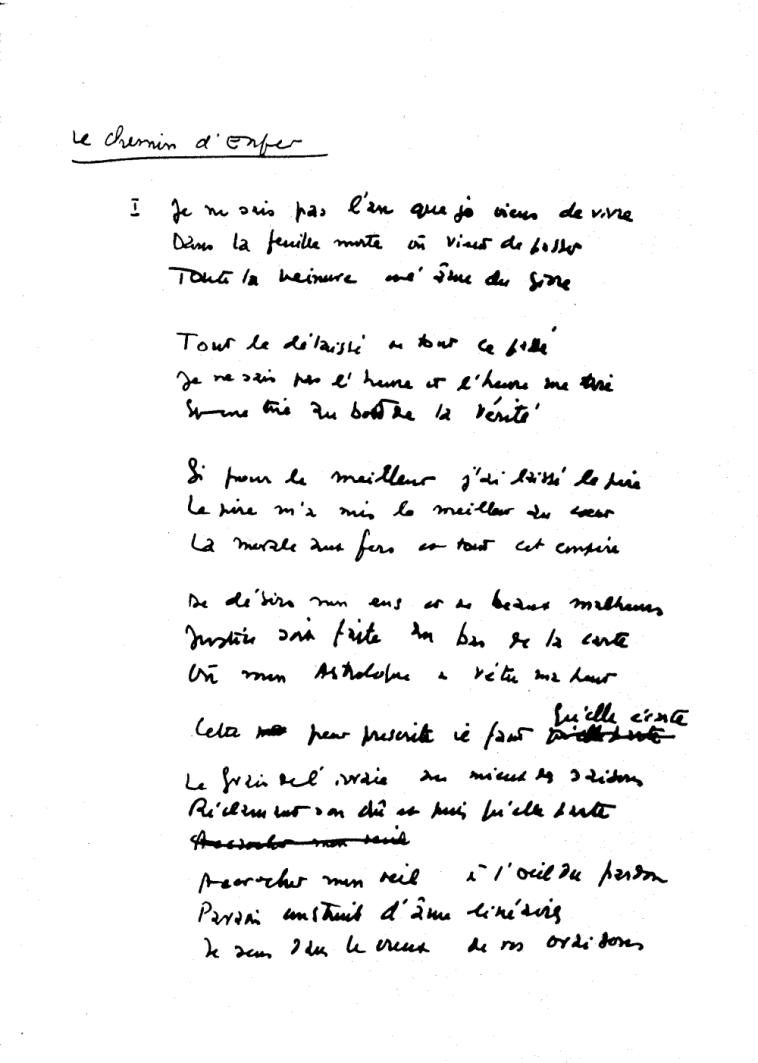 Le Chemin d'Enfer
I Je ne sais pas l'an que je viens de vivre
Dans la feuille morte où vient de passer
Toute la neinure âme du givre
Tout le délaissé et tout ce pillé
Je ne sais pas l'heure et l'heure me tire
au bord de la Vérité
Si pour le meilleur j'ai laissé le pire
Le pire m'a mis le meilleur au cœur
La morale aux fers et tout cet empire
De désirs mon ens et de beaux malheurs
Justice soit faite au bas de la carte
Où mon Astrologue a vêtu ma peur
Cette peur prescrite il faut qu'elle écarte
Le grain de l'ivraie au mieux des saisons
Réclamant son dû et puis qu'elle parte
Accrocher mon œil
Accrocher mon œil à l'œil du pardon
Parvis construit d'âme linéaire
Je dans le creux de vos oraisons